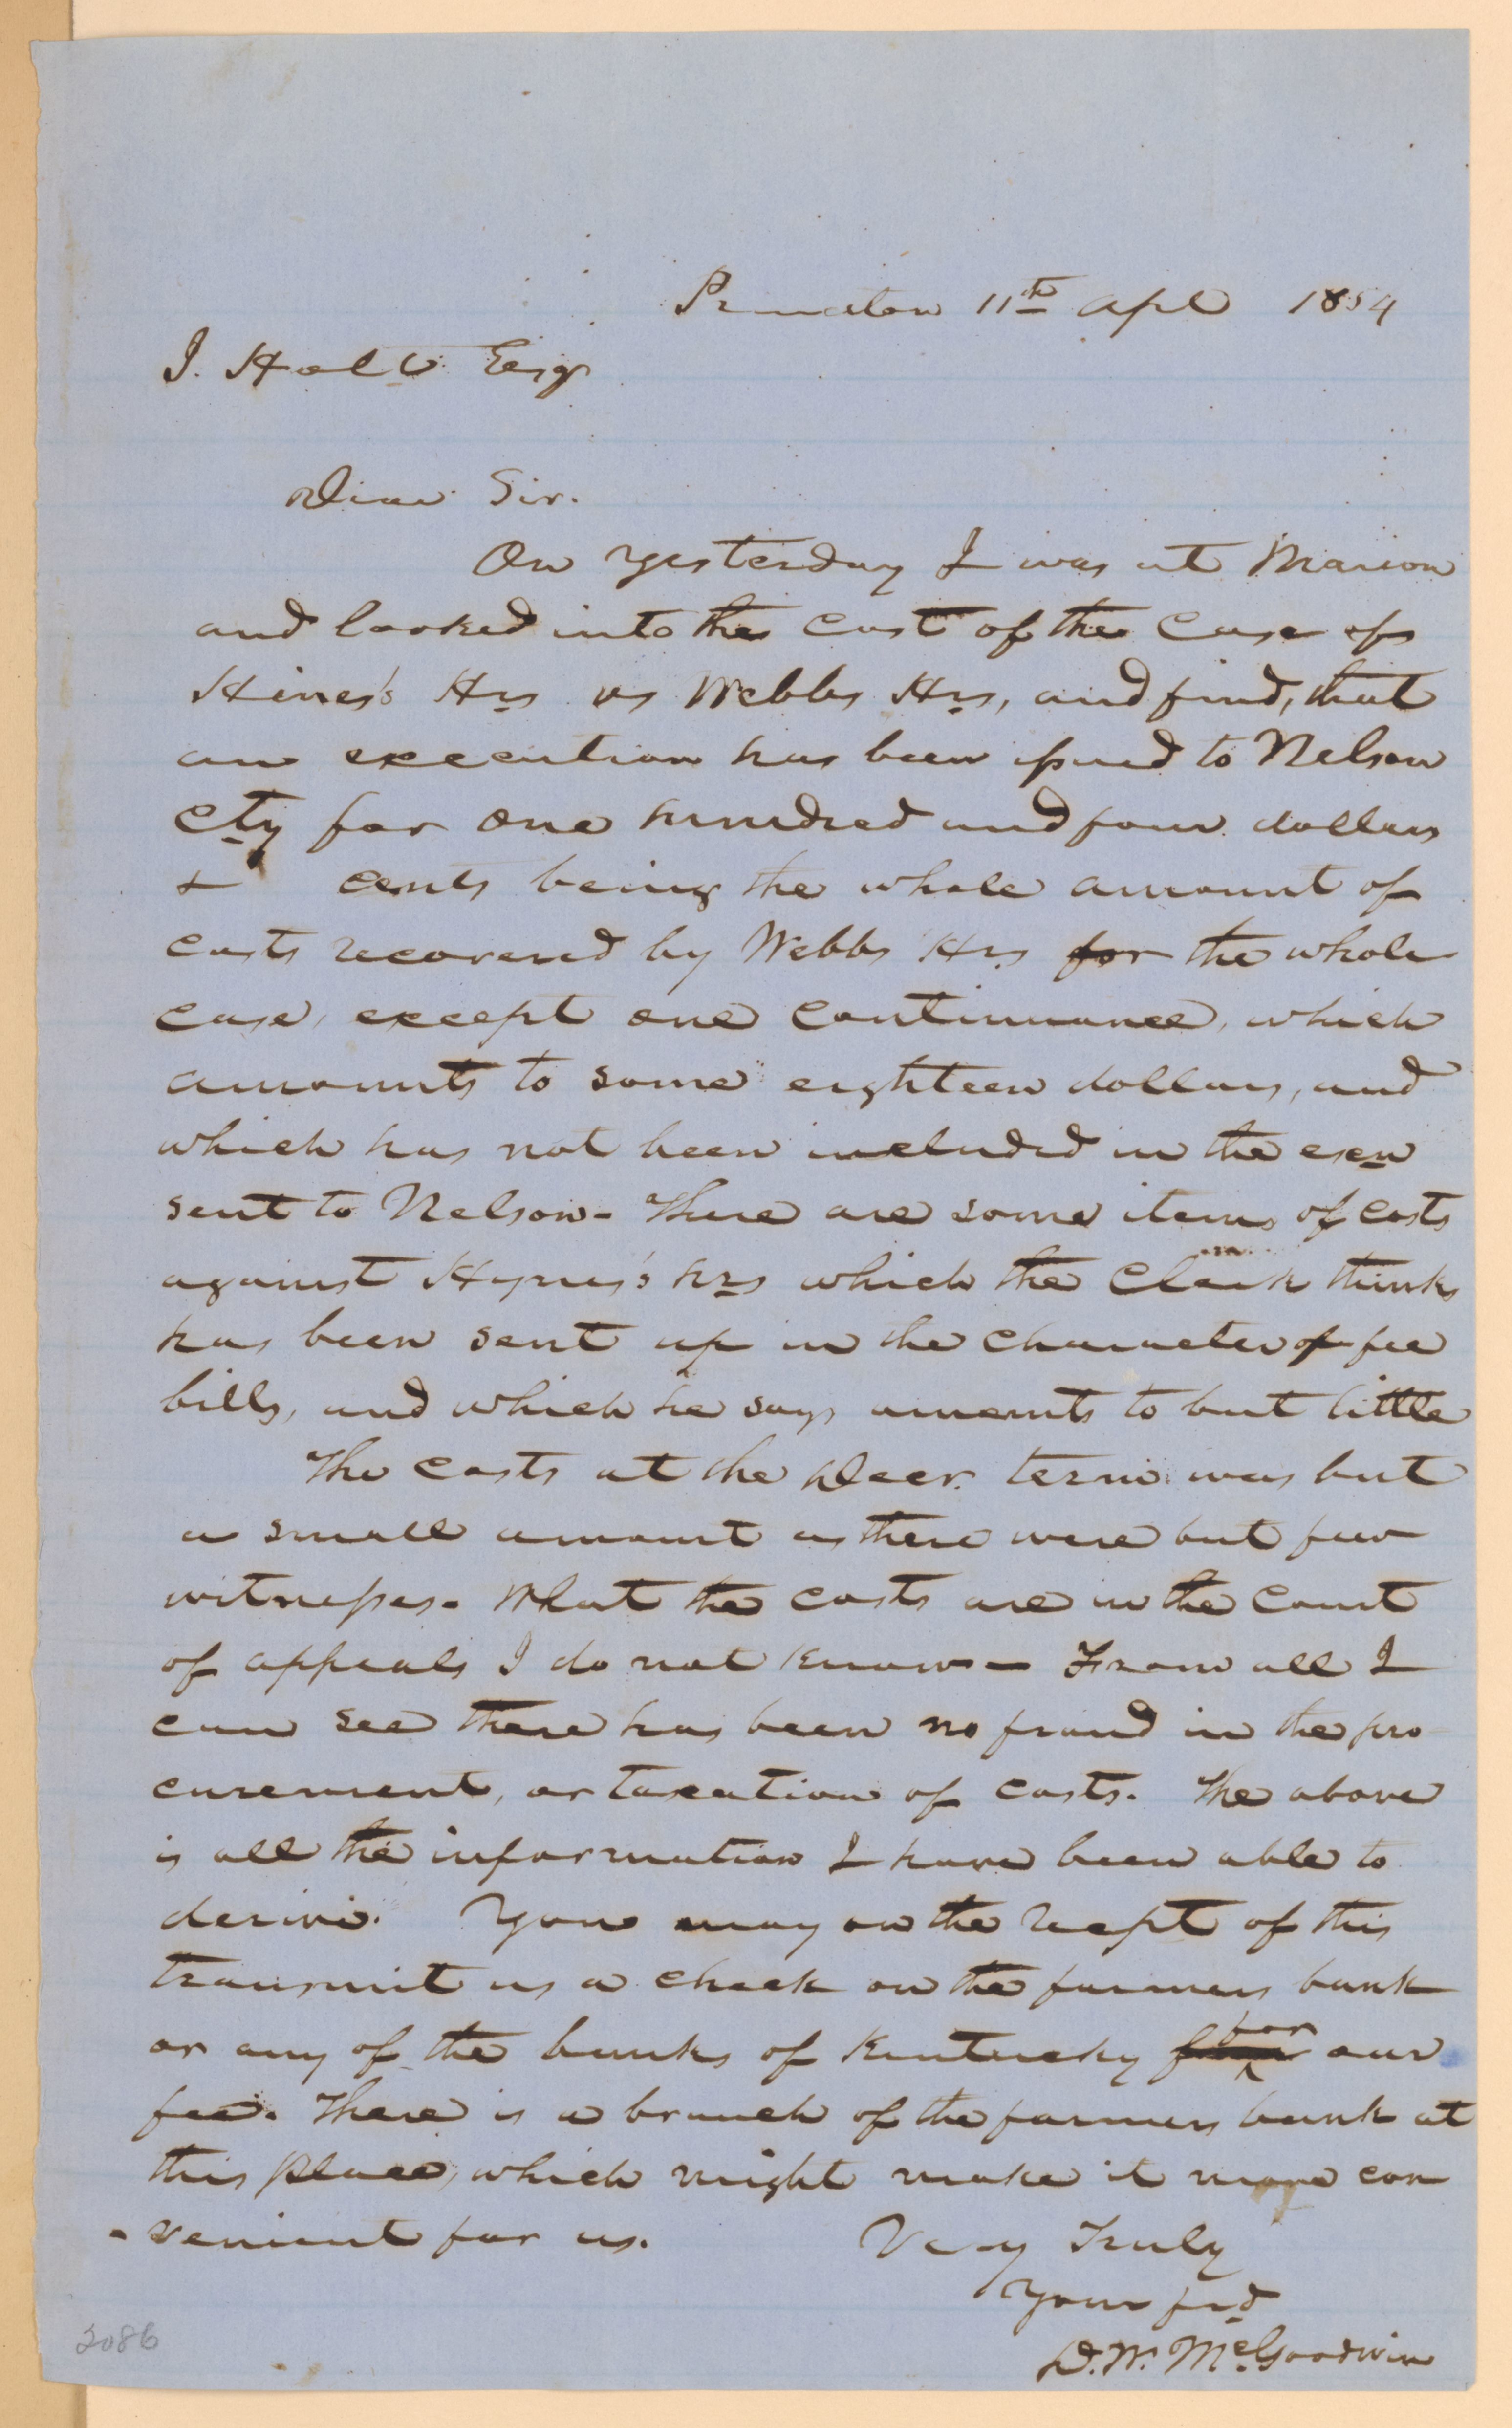 Princeton 11th Apl 1854
J. Holt Esqr
Dear Sir.
On yesterday I was at Marion
and looked into the cost of the case of
Hines's Hrs vs Webbs Hrs, and find, that
an execution has been issued to Nelson
Cty for one hundred and four dollars
& cents being the whole amount of
costs recovered by Webbs Hrs for the whole
case, except one continuance, which
amounts to some eighteen dollars, and
which has not been included in the exon
sent to Nelson - There are some items of costs
against Hynes's hrs which the Clerk thinks
has been sent up in the character of fee
bills, and which he says amounts to but little
The costs at the Decr. term was but
a small amount as there were but few
witnesses. What the costs are in the Court
of appeals I do not know - From all I
can see there has been no fraud in the pro
curement, or taxation of costs. The above
is all the information I have been able to
derive. You may on the recpt of this
transmit us a check on the farmers bank
or any of the banks of Kentucky for our
fee. There is a branch of the farmers bank at
this place, which might make it more con
-venient for us. Very Truly
Your frd
D. W. McGoodwin
2086